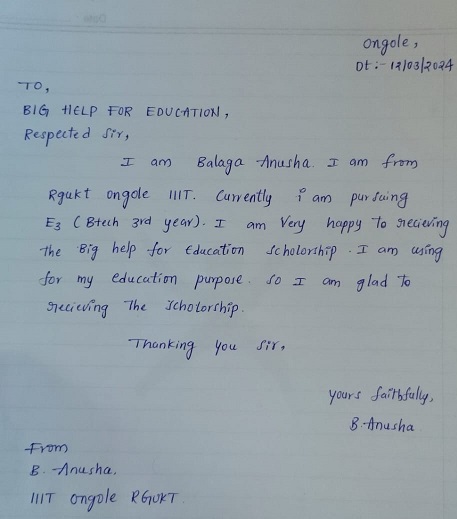 Ongole,
Dt:- 12/03/2024
TO,
BIG HELP FOR EDUCATION,
Respected Sir,
I am Balaga Anusha. I am from
Rgukt ongole IIIT. Currently i am pursuing
E3 (Btech 3rd year). I am Very happy To recieving
the Big help for Education Scholorship. I am using
for my education purpose. So I am glad To
recieving The Scholorship.
Thanking you Sir,
yours faithfully,
B.Anusha
From
B. Anusha,
IIIT ongole RGUKT.